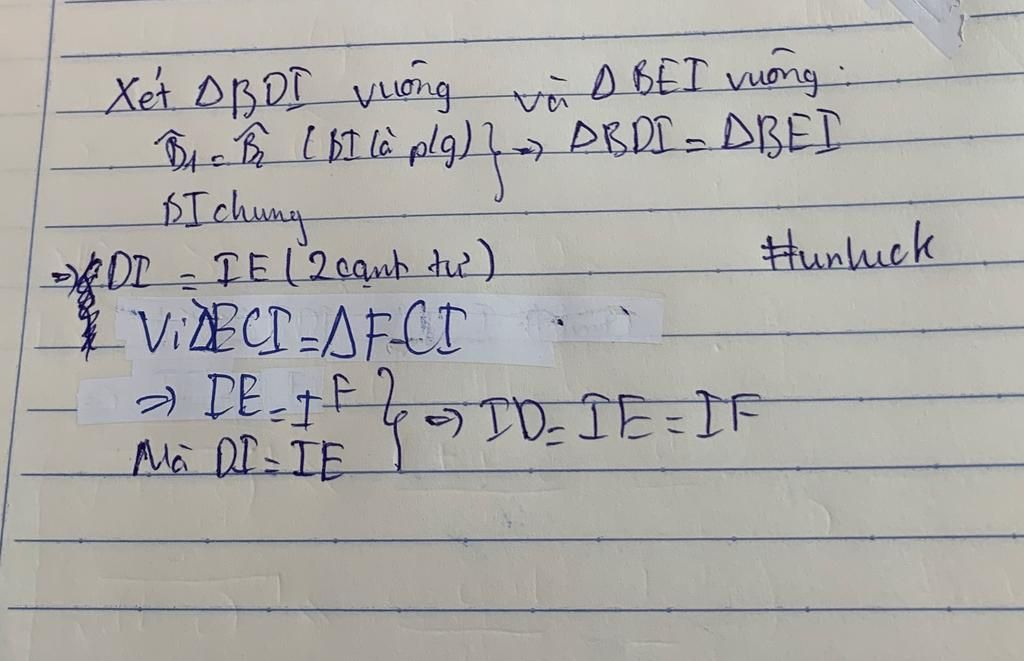 Xét ΔBDI vuông và ΔBEI vuông:
B̂1 = B̂2 (BI là p/g) } => ΔBDI = ΔBEI
BI chung
=> DI = IE (2 cạnh tứ)
#unluck
Vì ΔECI = ΔFCI
=> IE = IF } => ID = IE = IF
Mà DI = IE